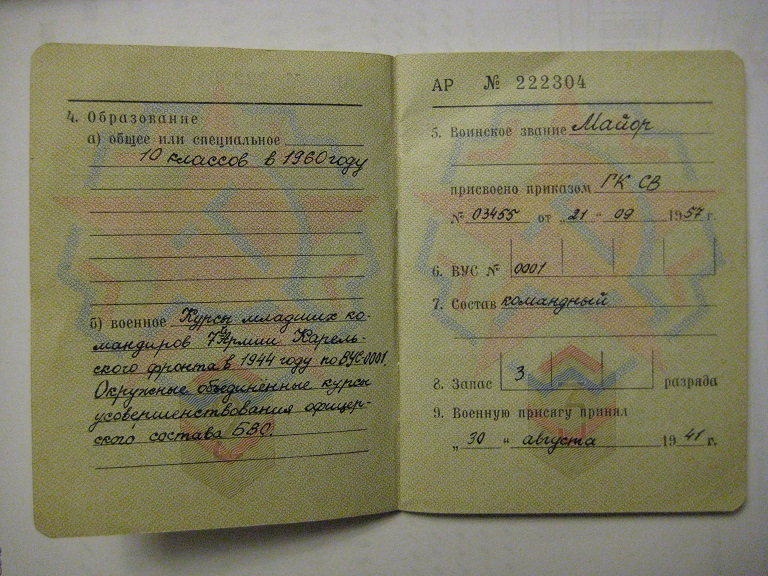 4. Образование
а) общее или специальное
10 классов в 1960 году
б) военное Курсы младших ко-
мандиров 7й Армии Карель-
ского фронта в 1944 году по ВУС-0001.
Окружные объединенные курсы
усовершенствования офицер-
ского состава БВО.
АР № 222304
5. Воинское звание Майор
присвоено приказом ГК СВ
№ 03455 от „21“ 09 1957 г.
6. ВУС № 0001
7. Состав командный
8. Запас 3 разряда
9. Военную присягу принял
„30“ августа 1941 г.